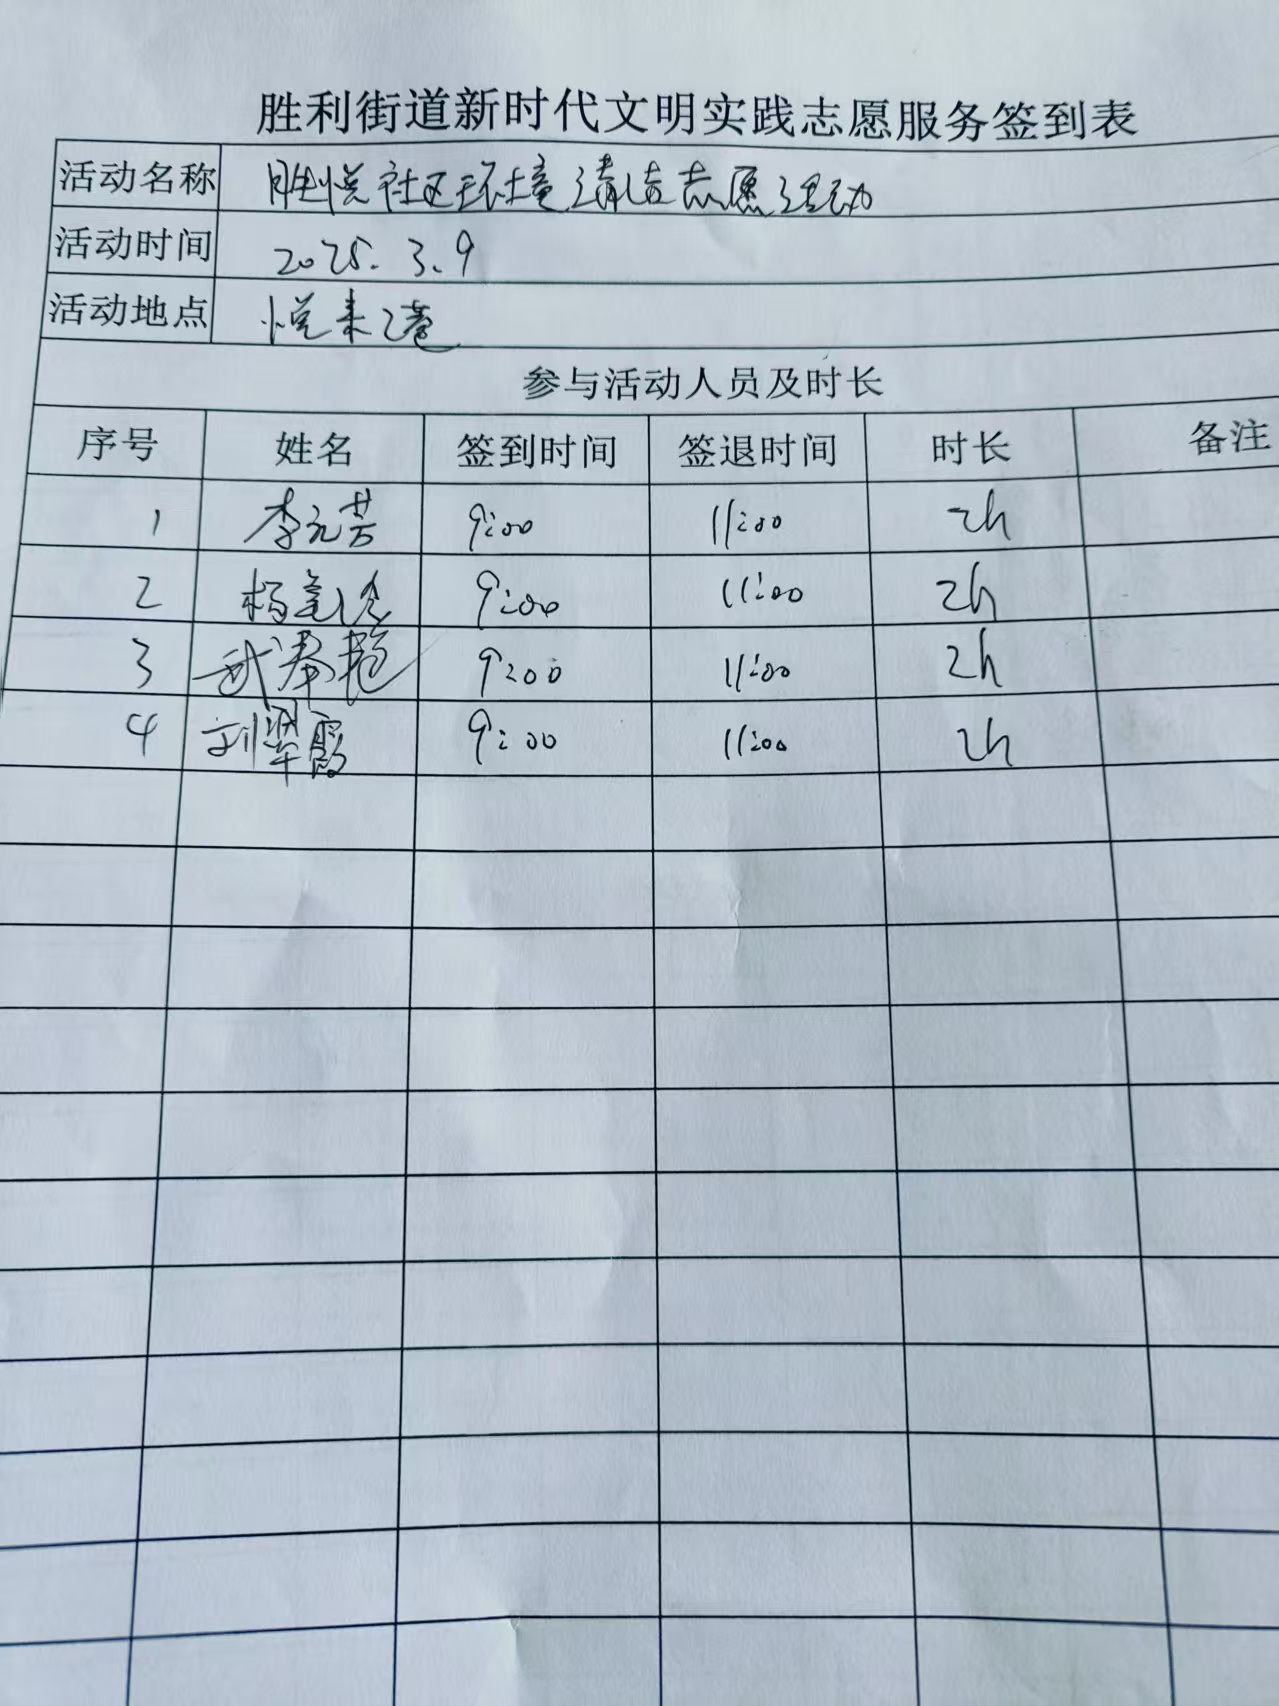 胜利街道新时代文明实践志愿服务签到表
活动名称 胜悦社区环境清洁志愿活动
活动时间 2025.3.9
活动地点 悦来港
参与活动人员及时长
序号 姓名 签到时间 签退时间 时长 备注
1 李元芳 9:00 11:00 2h
2 杨 9:00 11:00 2h
3 武秦艳 9:00 11:00 2h
4 刘翠霞 9:00 11:00 2h